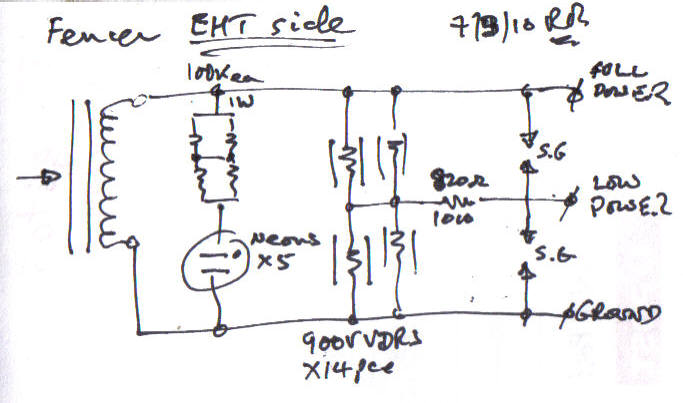 Fencer EHT side 7/9/10 RR
100K ea
1W
FULL
POWER
S.G
820Ω
10W
LOW
POWER
Neons
X5
S.G
GROUND
900V VDRS
X14 pce